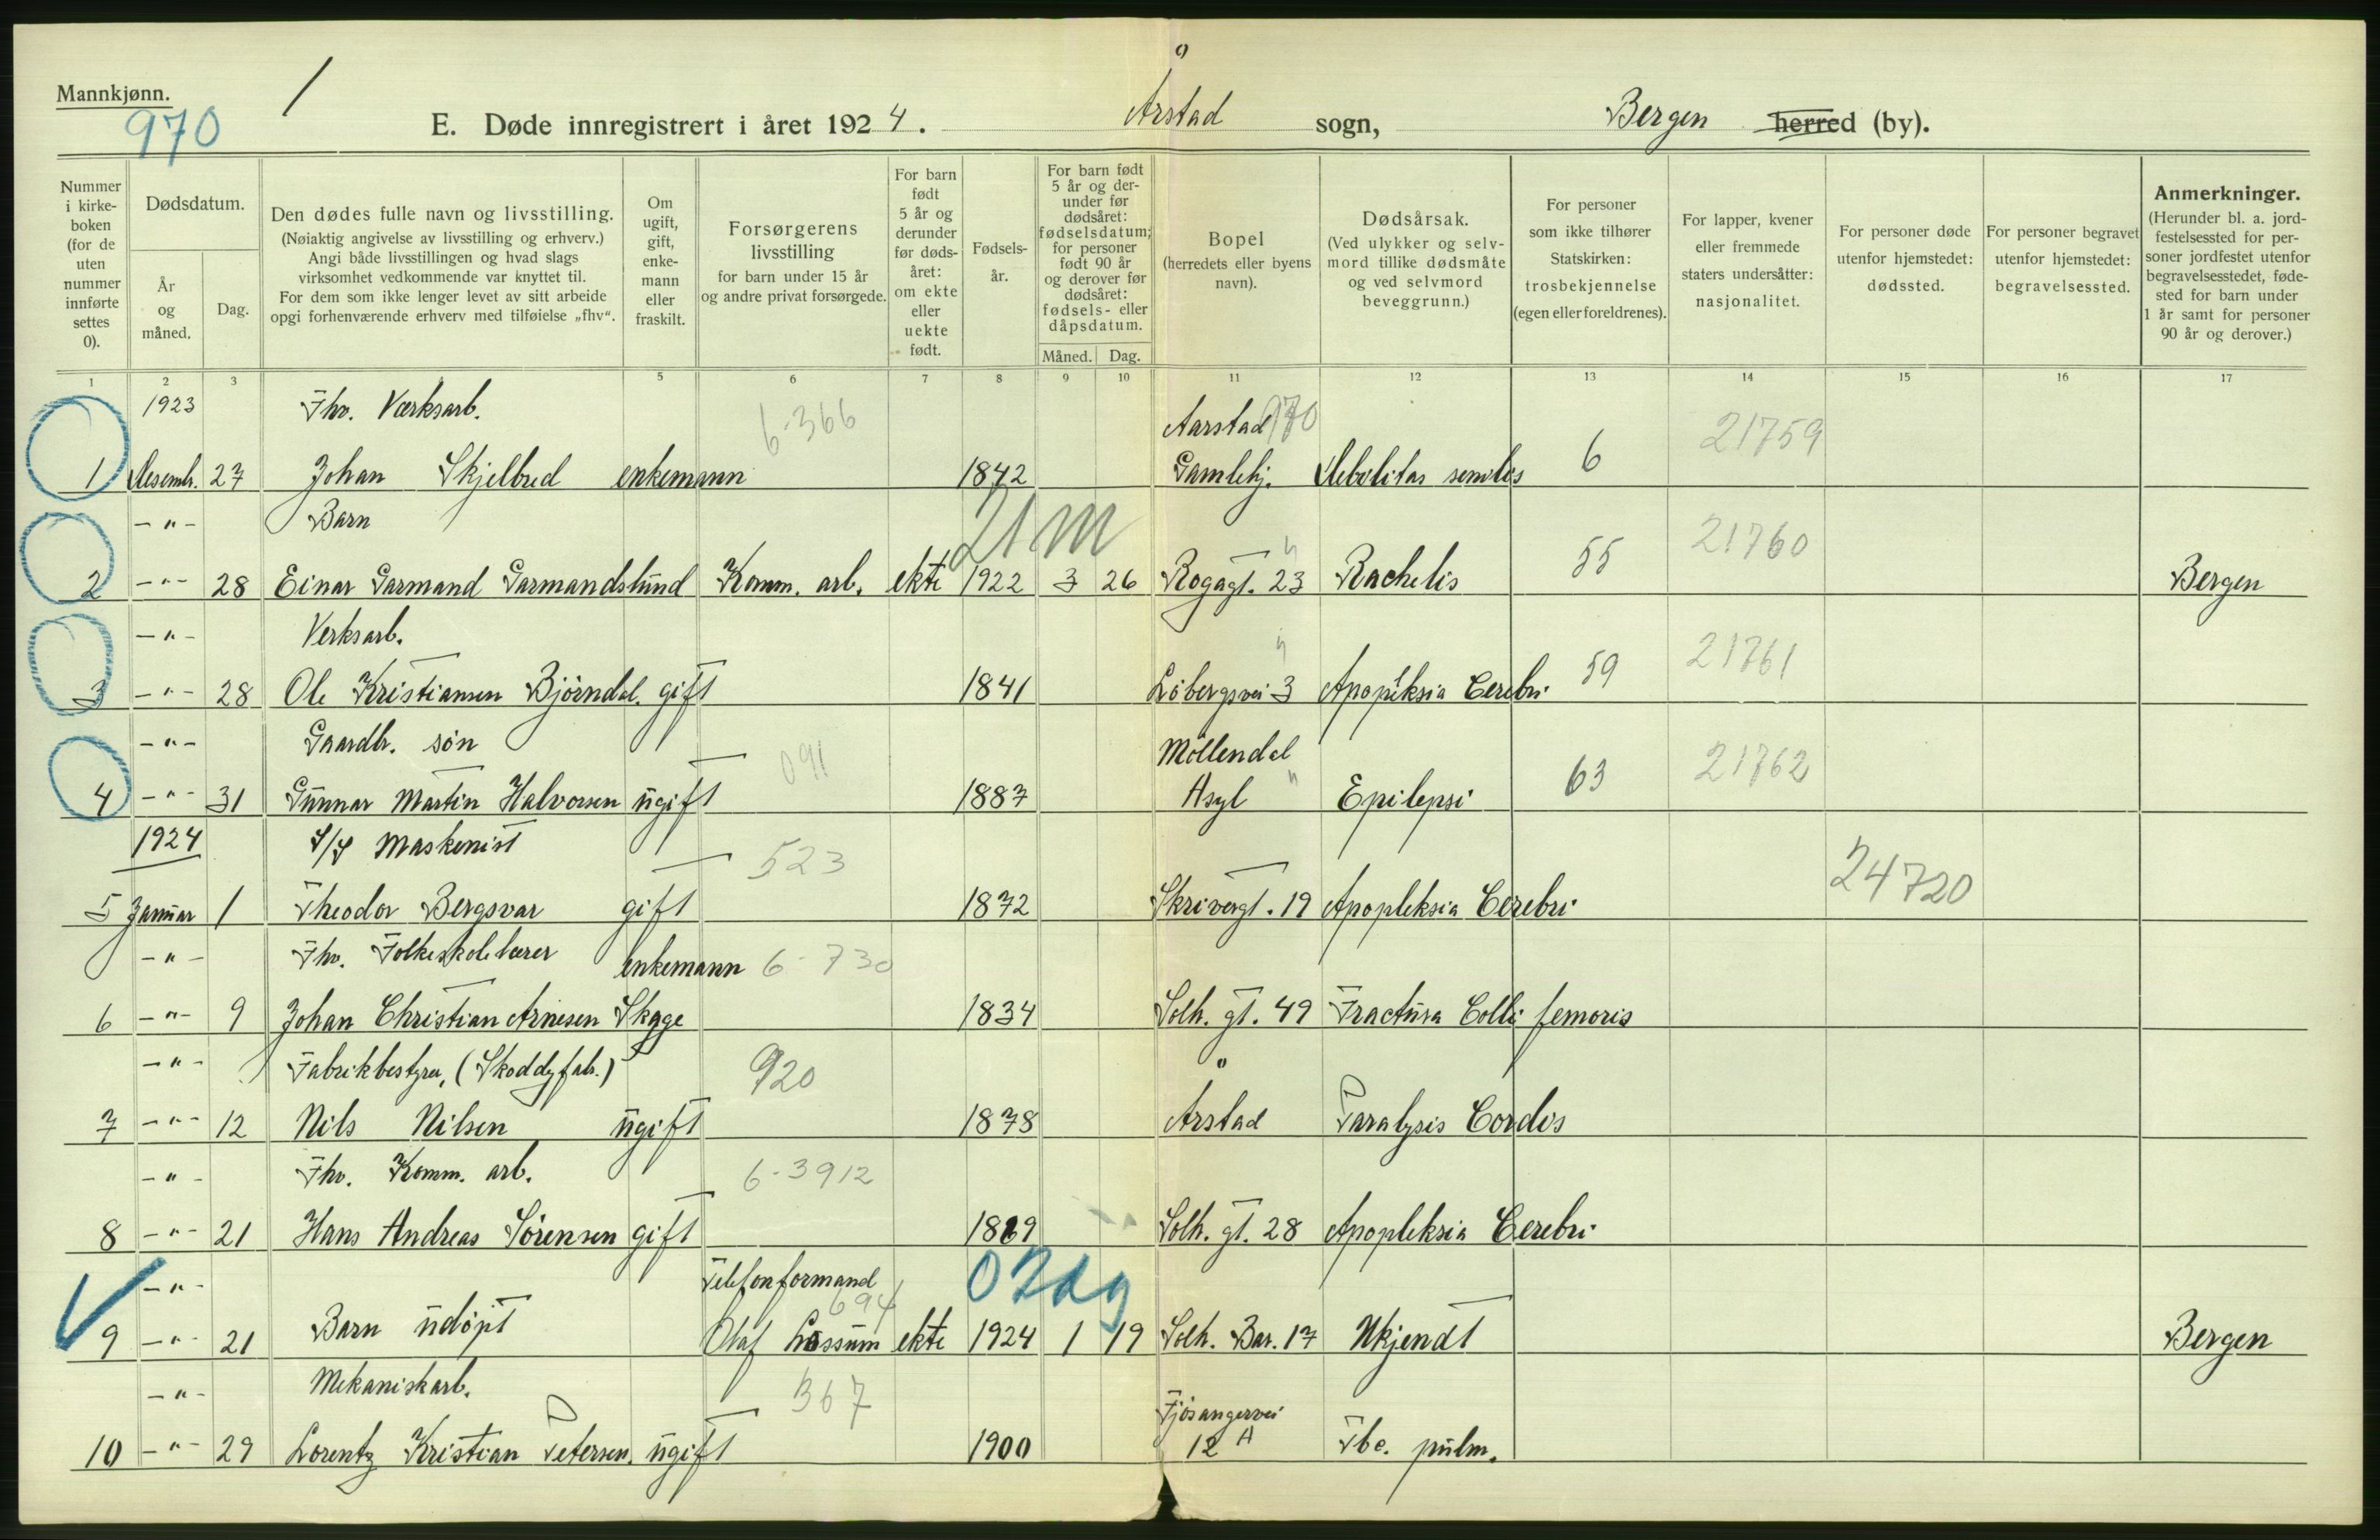 Mannkjønn.
970
E. Døde innregistrert i året 1924. Årstad sogn, Bergen herred (by).
Nummer i kirkeboken (for de uten nummer innførte settes 0).
Dødsdatum.
År og måned.
Dag.
Den dødes fulle navn og livsstilling.
(Nøiaktig angivelse av livsstilling og erhverv.)
Angi både livsstillingen og hvad slags
virksomhet vedkommende var knyttet til.
For dem som ikke lenger levet av sitt arbeide
opgi forhenværende erhverv med tilføielse „fhv“.
Om ugift, gift, enkemann eller fraskilt.
Forsørgerens livsstilling
for barn under 15 år
og andre privat forsørgede.
For barn født 5 år og derunder før dødsåret: om ekte eller uekte født.
Fødselsår.
For barn født 5 år og derunder før dødsåret: fødselsdatum; for personer født 90 år og derover før dødsåret: fødsels- eller dåpsdatum.
Måned. Dag.
Bopel
(herredets eller byens navn).
Dødsårsak.
(Ved ulykker og selvmord tillike dødsmåte og ved selvmord beveggrunn.)
For personer som ikke tilhører Statskirken: trosbekjennelse (egen eller foreldrenes).
For lapper, kvener eller fremmede staters undersåtter: nasjonalitet.
For personer døde utenfor hjemstedet: dødssted.
For personer begravet utenfor hjemstedet: begravelsessted.
Anmerkninger.
(Herunder bl. a. jordfestelsessted for personer jordfestet utenfor begravelsesstedet, fødested for barn under 1 år samt for personer 90 år og derover.)
1 2 3 5 6 7 8 9 10 11 12 13 14 15 16 17
1923 Fhv. Værksarb. 6-366 Aarstad 970
1 Desembr. 27 Johan Skjelbred enkemann 1842 Gamlehj. Debilitas senilis 6 21759
— " — Barn 21 m
2 — " — 28 Einar Garmand Garmandslund Komm. arb. ekte 1922 3 26 Rogagt. 23 Rachelis 55 21760 Bergen
— " — Verksarb.
3 — " — 28 Ole Kristiansen Bjørndal. gift 1841 Løbergsvei 3 Apopleksia Cerebri 59 21761
— " — Gaardbr. søn 091 Møllendal
4 — " — 31 Gunnar Martin Halvorsen ugift 1887 Asyl Epilepsi 63 21762
1924 S/S Maskenist 523
5 Januar 1 Theodor Bergsvar gift 1872 Skrivergt. 19 Apopleksia Cerebri 24720
— " — Fhv. Folkeskolelærer enkemann 6-730
6 — " — 9 Johan Christian Arnesen Skage 1834 Solh. gt. 49 Fractura Colli femoris
— " — Fabrikbestyrer, (Skoddyfabr.) 920
7 — " — 12 Nils Nilsen ugift 1878 Årstad Paralysis Cordis
— " — Fhv. Komm. arb. 6-3912
8 — " — 21 Hans Andreas Sørensen gift 1869 Solh. gt. 28 Apopleksia Cerebri
— " — Telefonformand 694 02dg
9 — " — 21 Barn udøpt Olaf Lossum ekte 1924 1 19 Solh. Bar. 17 Ukjendt Bergen
— " — Mekaniskarb. 367 Fjøsangervei
10 — " — 29 Lorentz Kristian Petersen. ugift 1900 12 A Tbc. pulm.